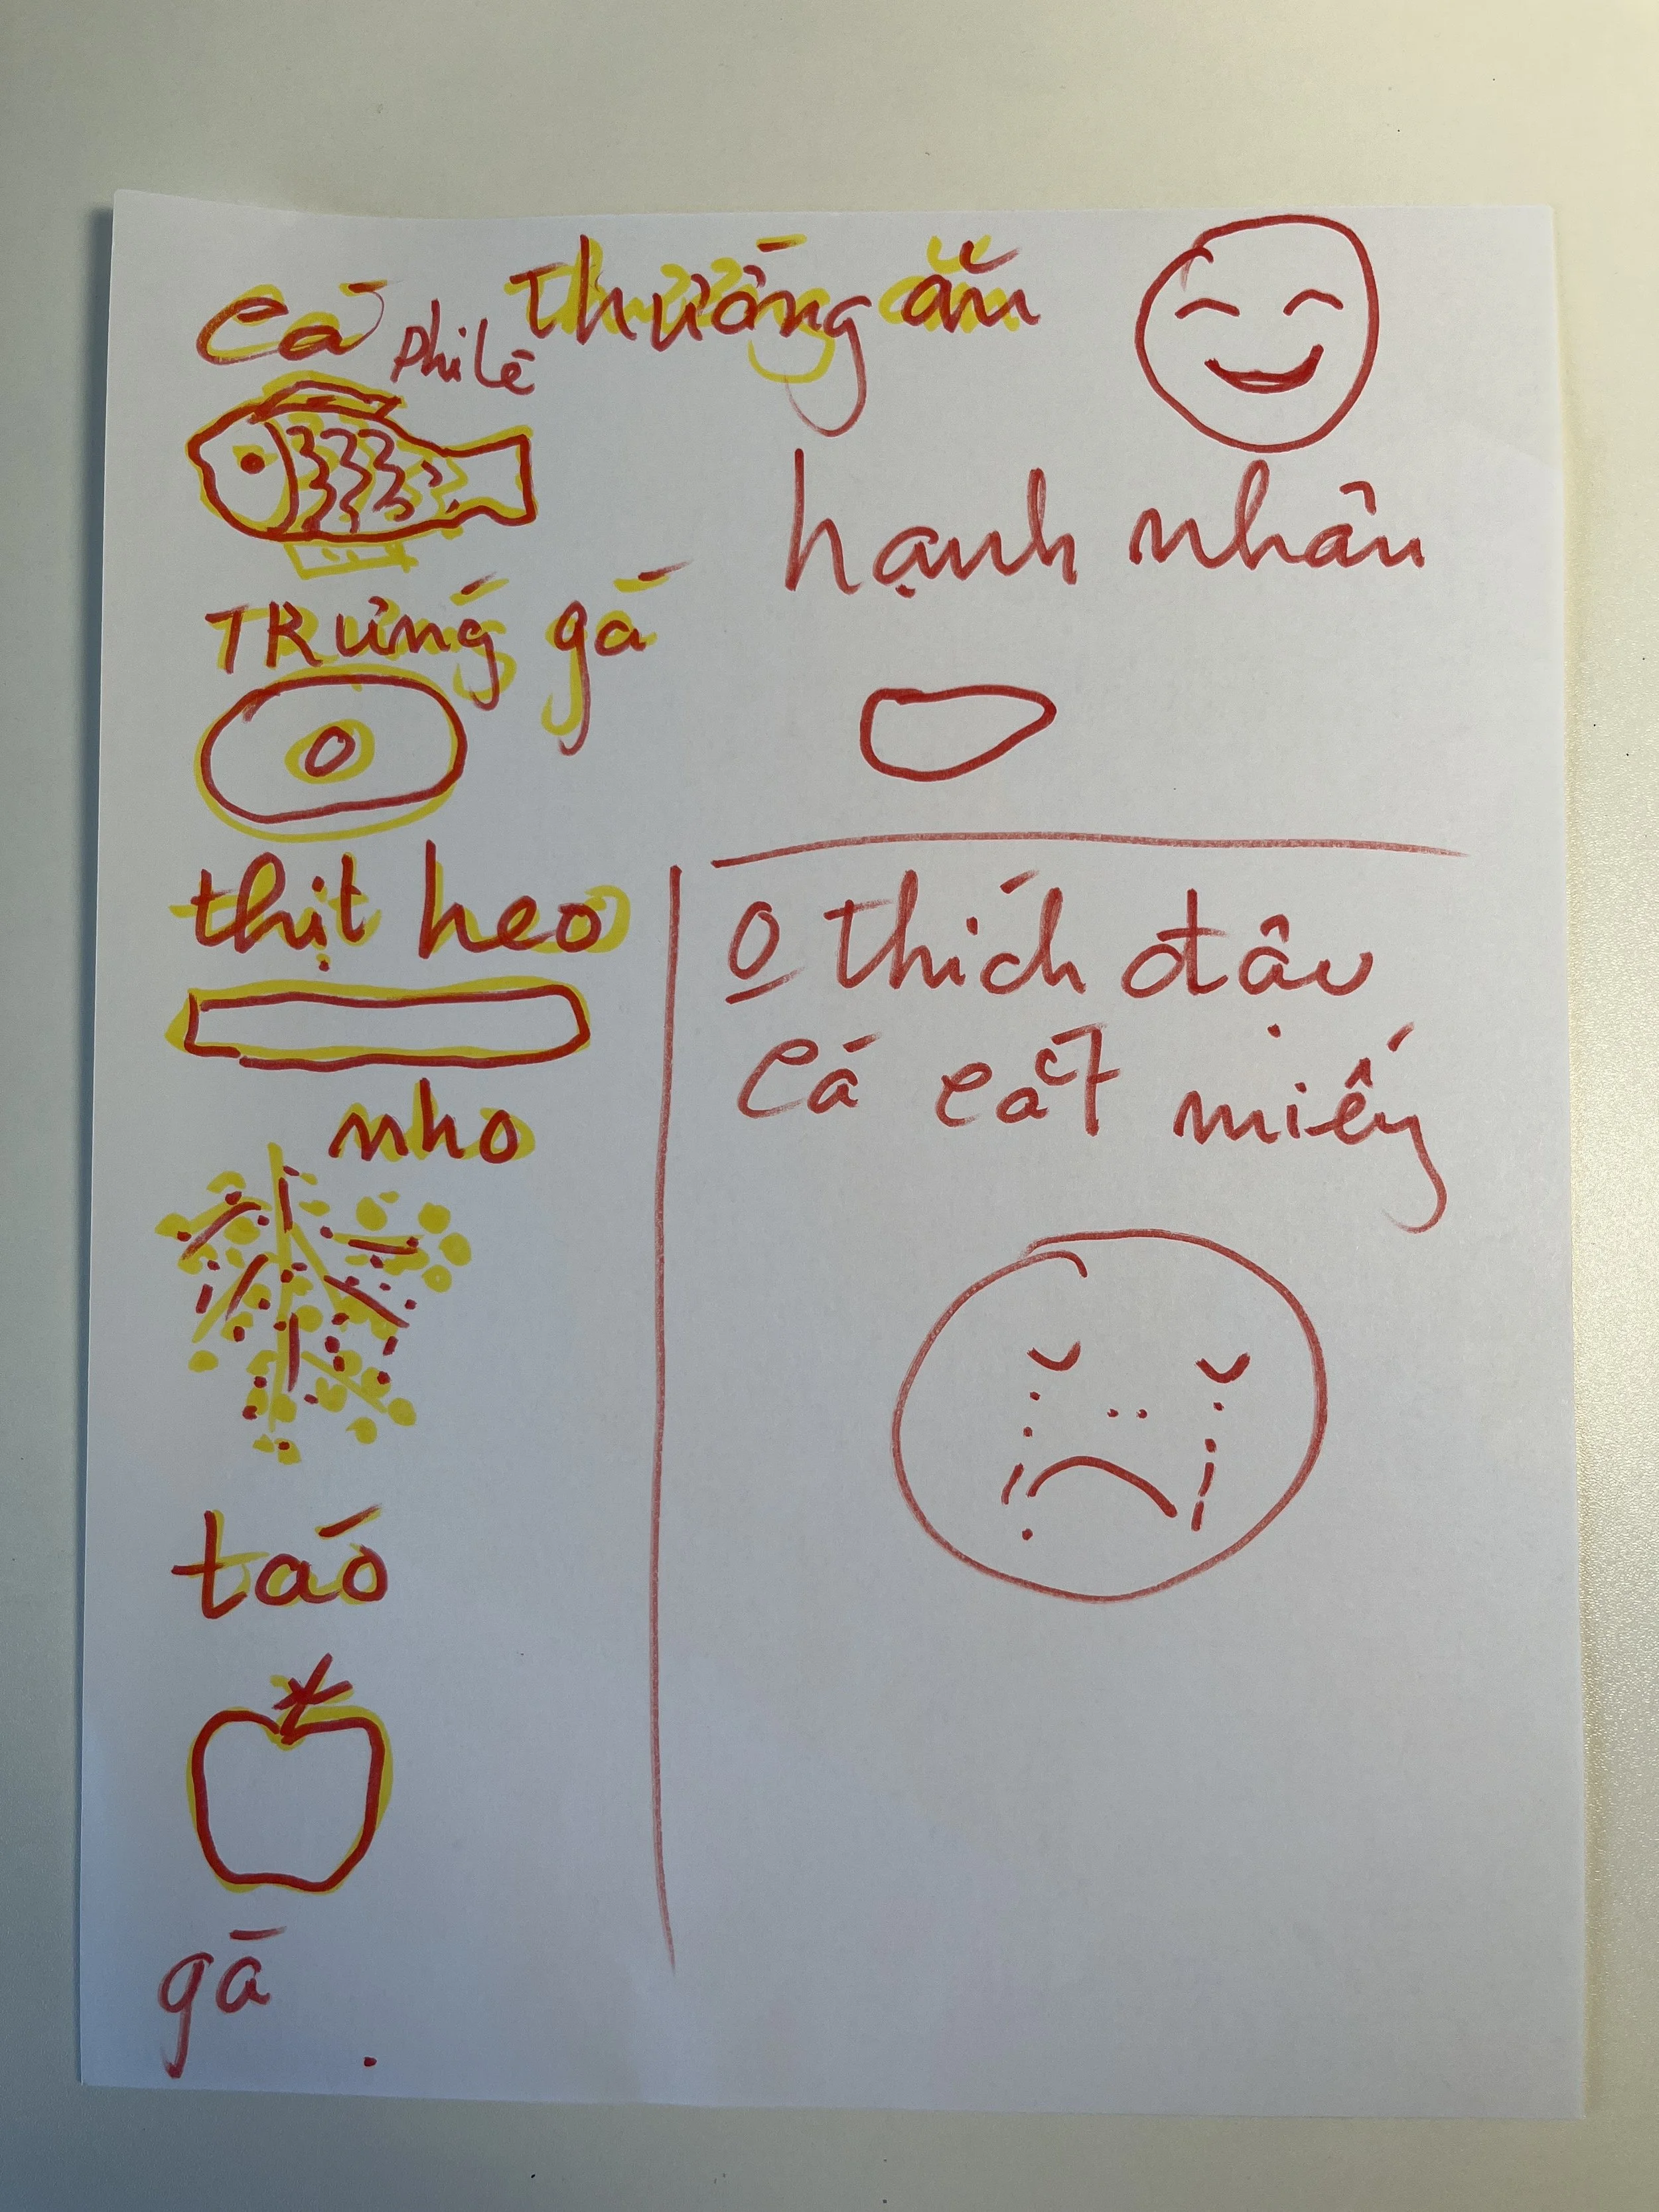 Cá phi lê
thường ăn
trứng gà
thịt heo
nho
táo
gà
hạnh nhân
0 thích đậu
Cá cắt miếng